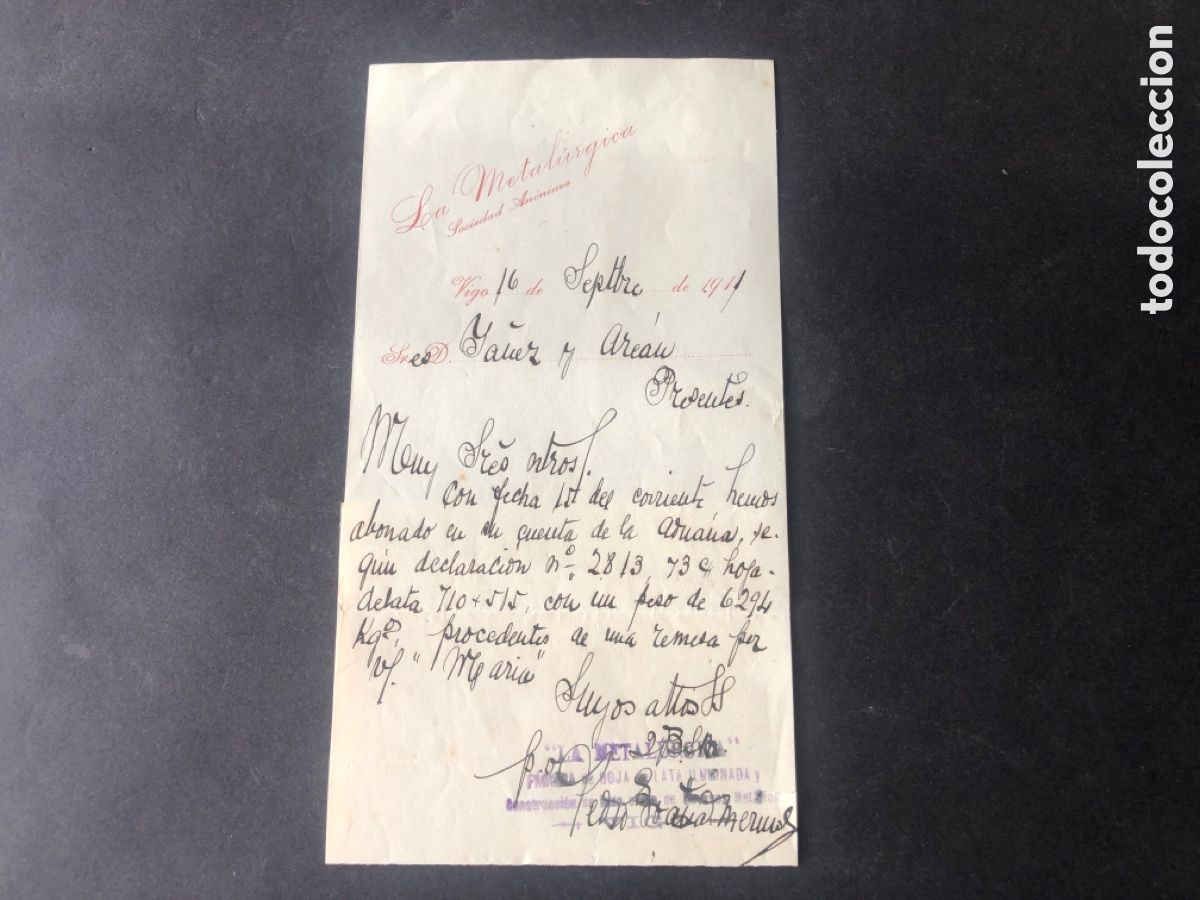 La Metalúrgica
Sociedad Anónima
Vigo 16 de Septbre de 1911
Sres D. Yáñez y Arcán
Presentes.
Muy Srēs ntros/.
Con fecha 15 del corriente hemos
abonado en su cuenta de la aduana, se-
gún declaración nº 2813, 73 hoja-
delata 710+515, con un peso de 6294
Kgs, procedentes de una remesa por
v/. "Maria"
Suyos attos SS
"LA METALÚRGICA"
p.o.
FÁBRICA DE HOJA DE LATA ILUMINADA y
Construcción de
todocoleccion